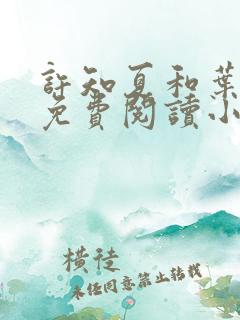 許知夏和葉
免費閱讀小
橫徒
未任同意禁止转载